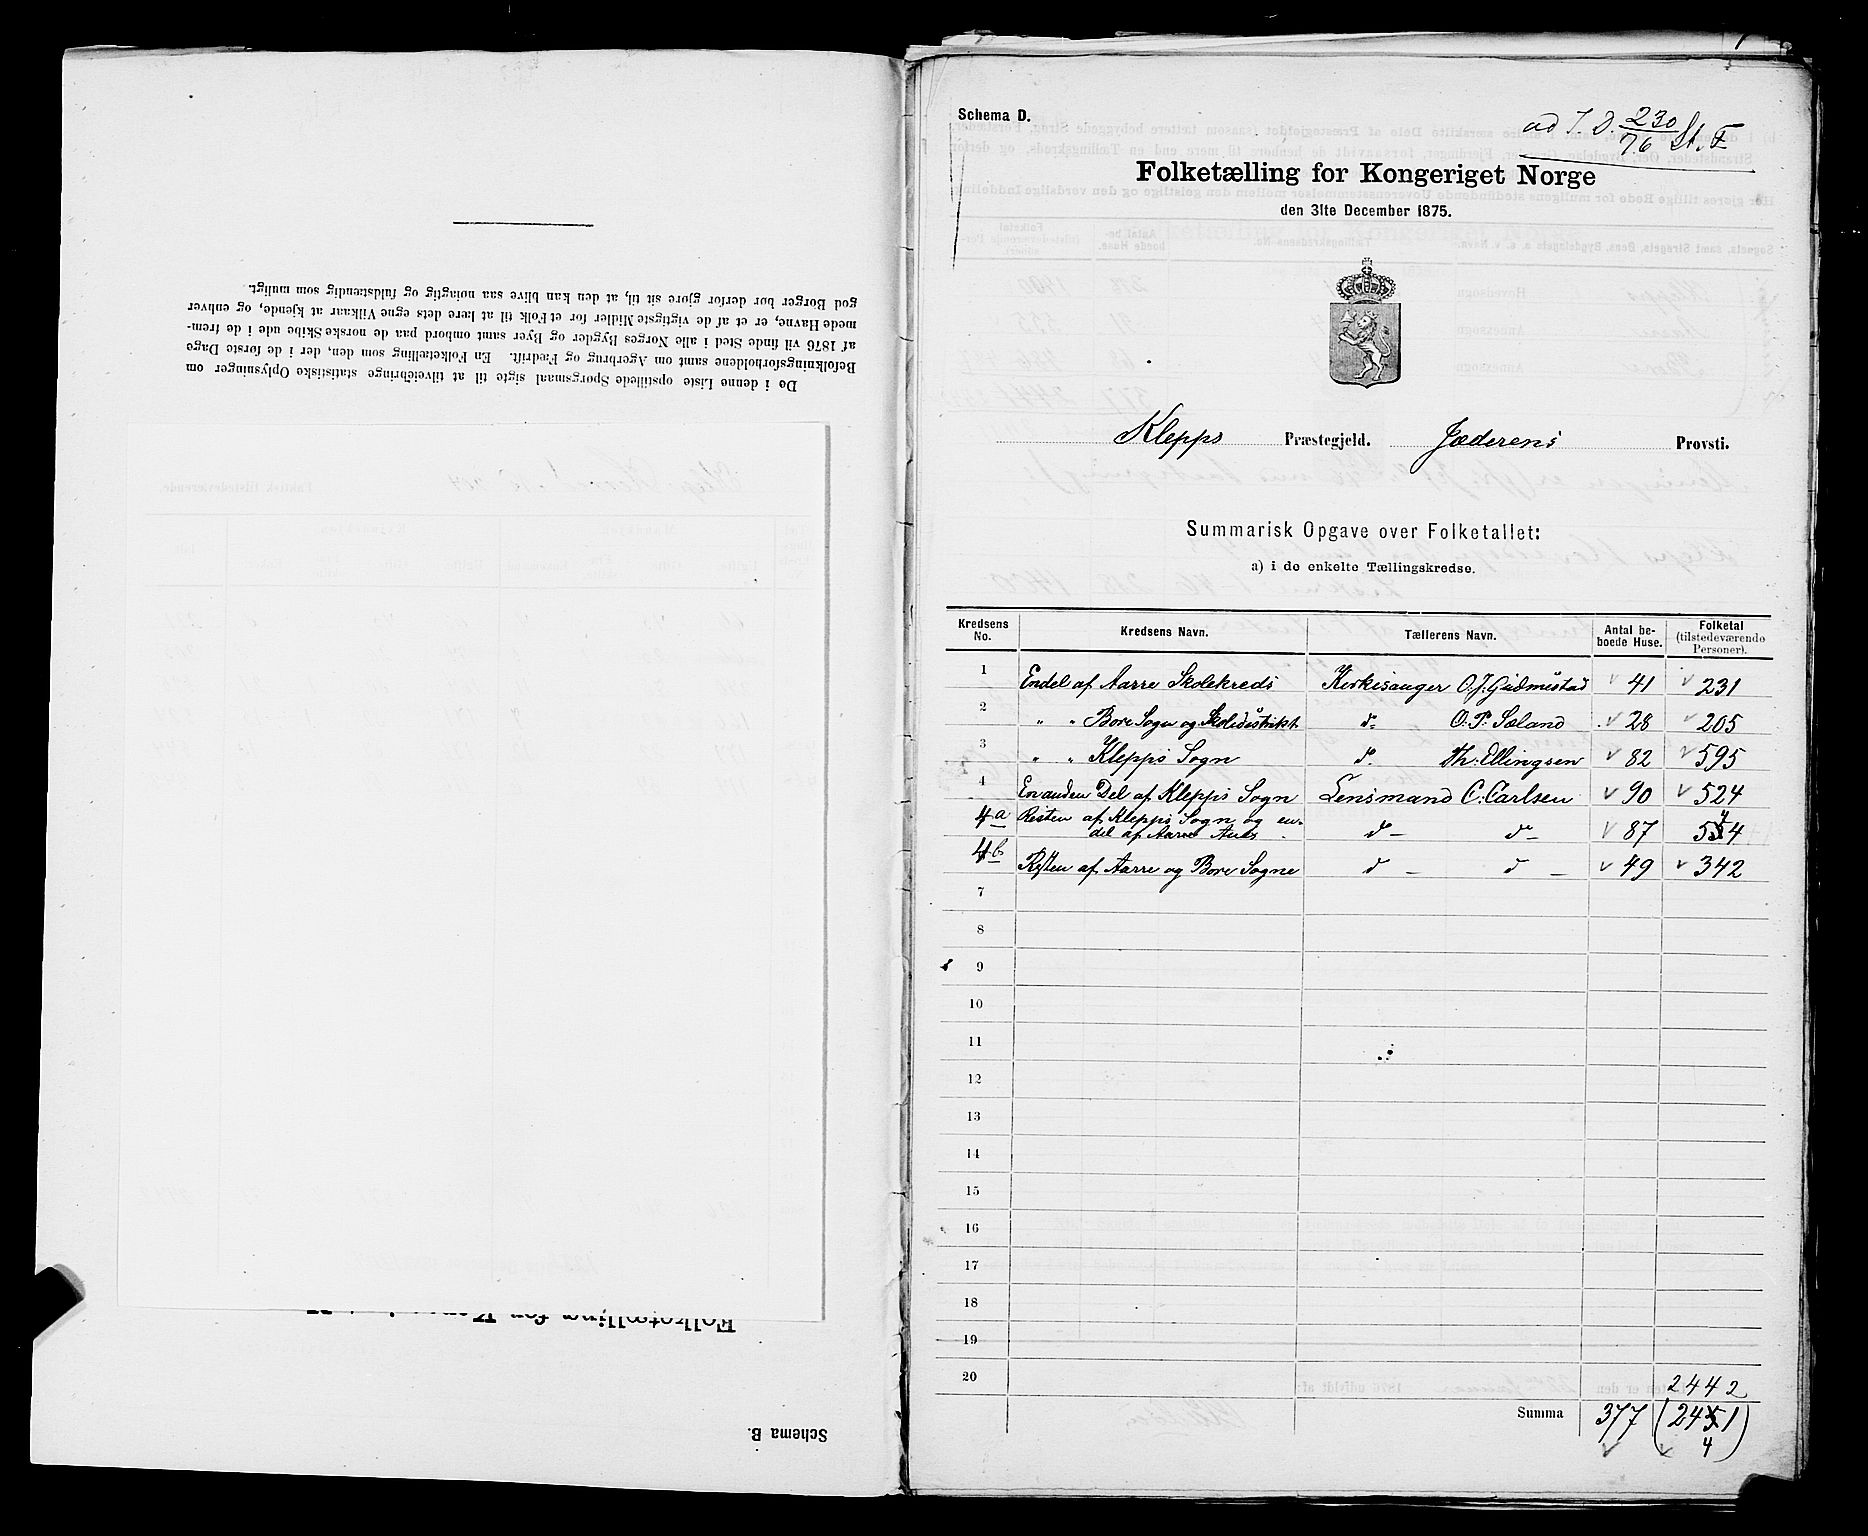 De i denne Liste opstillede Spørgsmaal sigte til at tilveiebringe statistiske Oplysninger om
Befolkningsforholdene samt om Agerbrug og Fædrift. En Folketælling som den, der i de første Dage
af 1876 vil finde Sted i alle Norges Bygder og Byer samt ombord paa de norske Skibe ude i de frem-
mede Havne, er et af de vigtigste Midler for et Folk til at lære dets egne Vilkaar at kjende, og enhver
god Borger bør derfor gjøre sit til, at den kan blive saa nøiagtig og fuldstændig som muligt.
Schema B.
Schema D.
ad J. D. 230/76 St. F
Folketælling for Kongeriget Norge
den 31te December 1875.
Klepps Præstegjeld. Jæderens Provsti.
Summarisk Opgave over Folketallet:
a) i de enkelte Tællingskredse.
Kredsens No. Kredsens Navn. Tællerens Navn. Antal be-boede Huse. Folketal (tilstedeværende Personer).
1 Endel af Aarre Skolekreds Kirkesanger O. J. Gudmestad 41 231
2 " " Bore Sogn og Skoledistrikt do O. P. Sæland 28 205
3 " " Klepps Sogn do Th. Ellingsen 82 595
4 En anden Del af Klepps Sogn Lensmand C. Carlsen 90 524
4a Resten af Klepps Sogn og en-
del af Aarre d- d- 87 554
4b Resten af Aarre og Bore Sogne d- d- 49 342
7
8
9
10
11
12
13
14
15
16
17
18
19
20
2442
Summa 377 (2451)
4